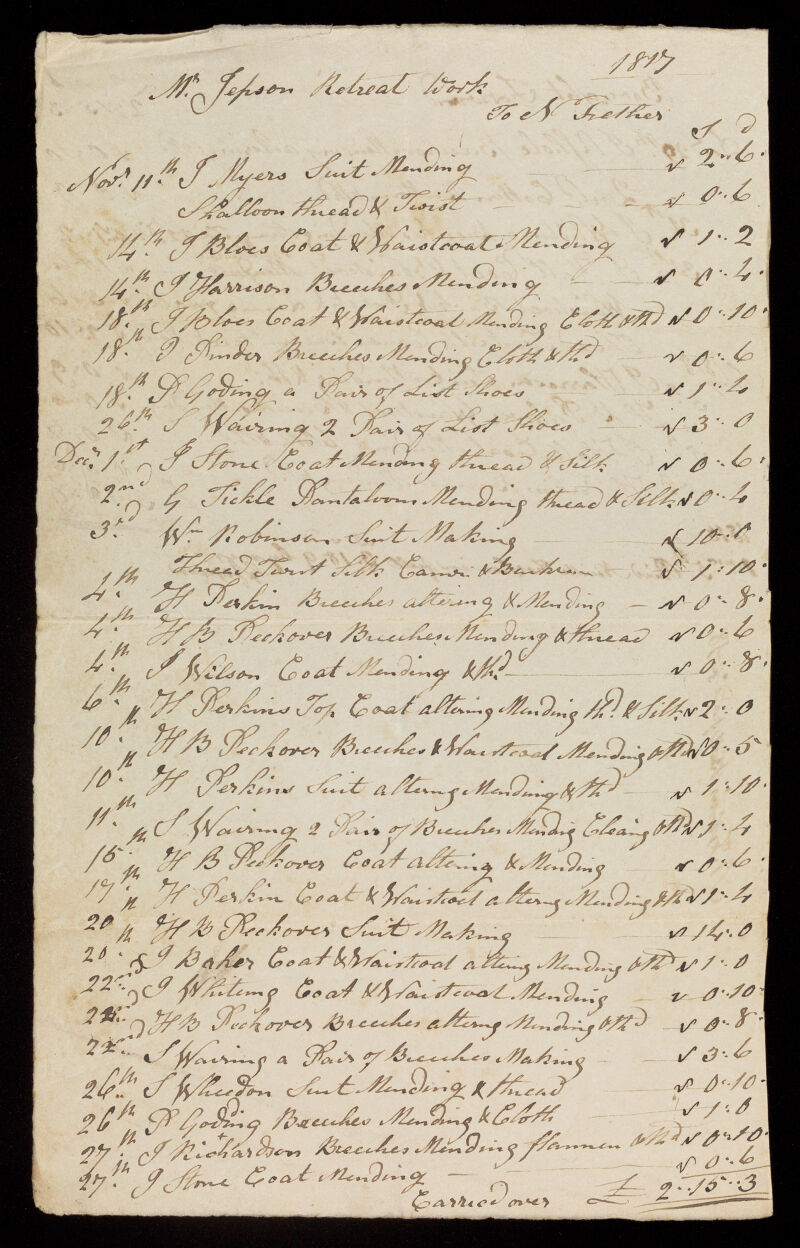 1817
Mr Jepson Retreat Work
To N Trether
S d
Novr 11th J Myers Suit Mending 2 " 6
Shalloon thread & Twist 0 " 6
14th J Bloes Coat & Waistcoat Mending 1 " 2
14th J Harrison Breeches Mending 0 " 4
18th J Bloes Coat & Waistcoat Mending Cloth & thd 0 " 10
18th P Pinder Breeches Mending Cloth & thd 0 " 6
18th P Goding a Pair of List Shoes 1 " 4
26th S Wairing 2 Pair of List Shoes 3 " 0
Decr 1st J Stone Coat Mending thread & Silk 0 " 6
2nd G Tickle Pantaloons Mending thread & Silk 0 " 4
3rd Wm Robinson Suit Making 10 " 0
Thread Twist Silk & Buckram 1 " 10
4th H Perkin Breeches altering & Mending 0 " 8
4th H B Peckover Breeches Mending & thread 0 " 6
4th J Wilson Coat Mending & thd 0 " 8
6th H Perkins Top Coat altering Mending thd & Silk 2 " 0
10th H B Peckover Breeches & Waistcoat Mending & thd 0 " 5
10th H Perkins Suit alterng Mending & thd 1 " 10
11th S Wairing 2 Pair of Breeches Mendig Cleaing & thd 1 " 4
15th H B Peckover Coat altering & Mending 0 " 6
17th H Perkin Coat & Waistcoat alterng Mending & thd 1 " 4
20th H B Peckover Suit Making 14 " 0
20th J Baker Coat & Waistcoat altering Mending & thd 1 " 0
22nd J Whiting Coat & Waistcoat Mending 0 " 10
22nd H B Peckover Breeches alterng Mending & thd 0 " 8
22nd S Wairing a Pair of Breeches Making 3 " 6
26th S Wheedon Suit Mending & thread 0 " 10
26th P Godding Breeches Mending & Cloth 1 " 0
27th J Richardson Breeches Mending flannen & thd 0 " 10
27th J Stone Coat Mending 0 " 6
Carried over £ 2 " 15 " 3